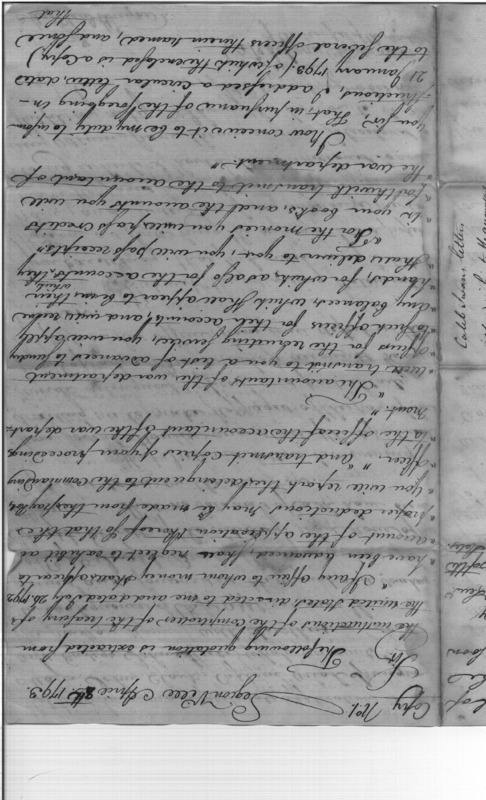 Copy No. 1.
Legion Ville April 8th 1793.
Sir
The following quotation is extracted from
the instructions of the Comptroller of the treasury of
the United States, directed to me and dated July 26 1792
" If any officer to whom money shall appear to
" have been advanced, shall neglect to exhibit an
" account of the application thereof so that the
" proper deductions may be made from his pay &c,
" you will report this delinquent to the commanding
" officer" " and transmit copies of your proceedings
" to the office of the accountant of the war depart-
" ment."
" The accountant of the war department
" will transmit to you a list of advances to sundry
" officers for the recruiting service, you will apply
" to such officers for their accounts, and will receive
" any balances which shall appear to be in their
" hands, for which, as also for the accounts, which they
" shall deliver to you, you will pass receipts"
" For the monies you will pass Credits
" in your books, and the accounts you will
" forthwith transmit to the accountant of
" the war department."
I now conceive it to be my duty to inform
you Sir, That, in pursuance of the foregoing in-
structions I addressed a circular letter, dated
21 January 1793 (of which the enclosed is a Copy)
to the several officers therein named, and since
that
Caleb Swan letter